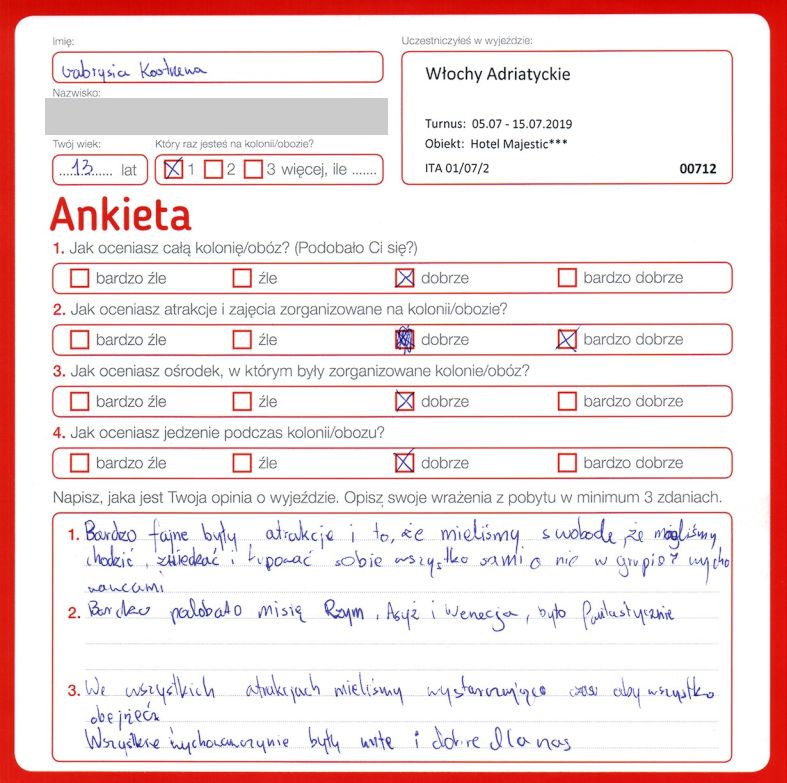 Imię:
Gabrysia
Nazwisko:
Twój wiek:
13 lat
Który raz jesteś na kolonii/obozie?
1 2 3 więcej, ile .......
Uczestniczyłeś w wyjeździe:
Włochy Adriatyckie
Turnus: 05.07 - 15.07.2019
Obiekt: Hotel Majestic***
ITA 01/07/2 00712
Ankieta
1. Jak oceniasz całą kolonię/obóz? (Podobało Ci się?)
bardzo źle źle dobrze bardzo dobrze
2. Jak oceniasz atrakcje i zajęcia zorganizowane na kolonii/obozie?
bardzo źle źle dobrze bardzo dobrze
3. Jak oceniasz ośrodek, w którym były zorganizowane kolonie/obóz?
bardzo źle źle dobrze bardzo dobrze
4. Jak oceniasz jedzenie podczas kolonii/obozu?
bardzo źle źle dobrze bardzo dobrze
Napisz, jaka jest Twoja opinia o wyjeździe. Opisz swoje wrażenia z pobytu w minimum 3 zdaniach.
1. Bardzo fajne były atrakcje i to, że mieliśmy swobodę, że mogliśmy
chodzić, zwiedzać i kupować sobie wszystko sami a nie w grupie z wycho
wawcami
2. Bardzo podobało misię Rzym, Asyż i Wenecja, było fantastycznie
3. We wszystkich atrakcjach mieliśmy wystarczająco czasu aby wszystko
obejrzeć
Wszystkie wychowawczynie były miłe i dobre dla nas